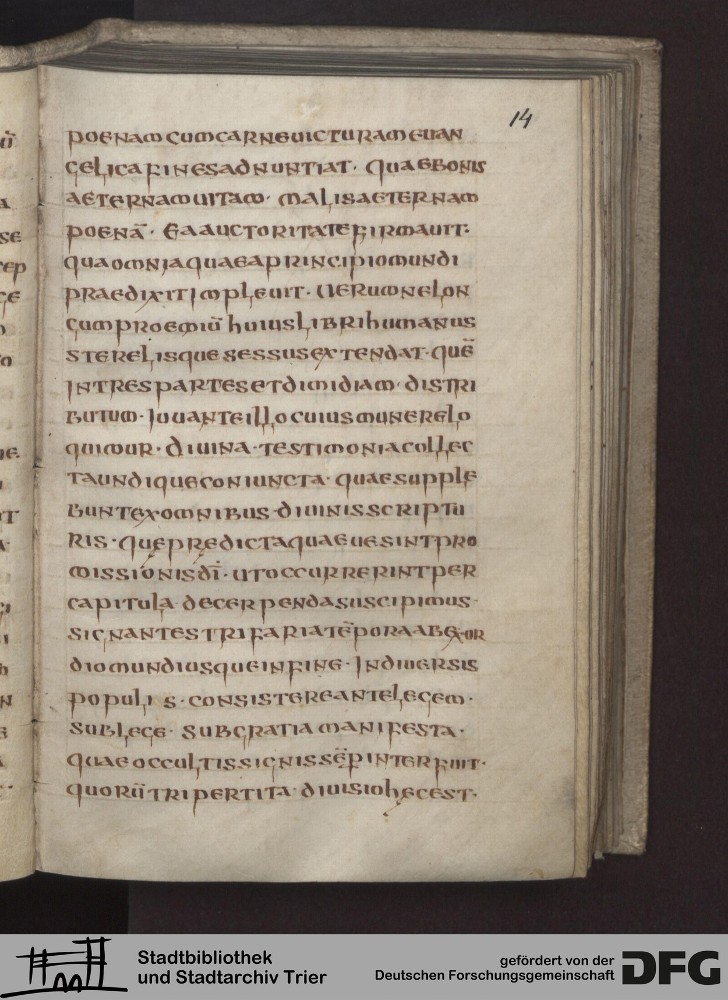 14
poenam cum carne uicturam euan
gelica fines adnuntiat· quae bonis
aeternam uitam· malis aeternam
poenā· Ea auctoritate firmauit·
qua omnia quae a principio mundi
praedixit impleuit· Uerum ne lon
gum proemiū huius libri humanus
sterelisque sessus extendat· quē
in tres partes et dimidiam· distri
butum· Iuuante illo cuius munere lo
quimur· diuina· testimonia collec
ta undique coniuncta· quae supple
bunt ex omnibus diuinis scriptu
ris· que predicta quaeue sint pro
missionis dī· ut occurrerint per
capitula decerpenda suscipimus·
signantes trifaria tēpora ab exor
dio mundi usque in fine· In diuersis
populis· consistere ante legem·
sub lege· sub gratia manifesta·
quae occultis signis sēp interfuit·
quorū tripertita diuisio hec est·
Stadtbibliothek
und Stadtarchiv Trier
gefördert von der
Deutschen Forschungsgemeinschaft
DFG